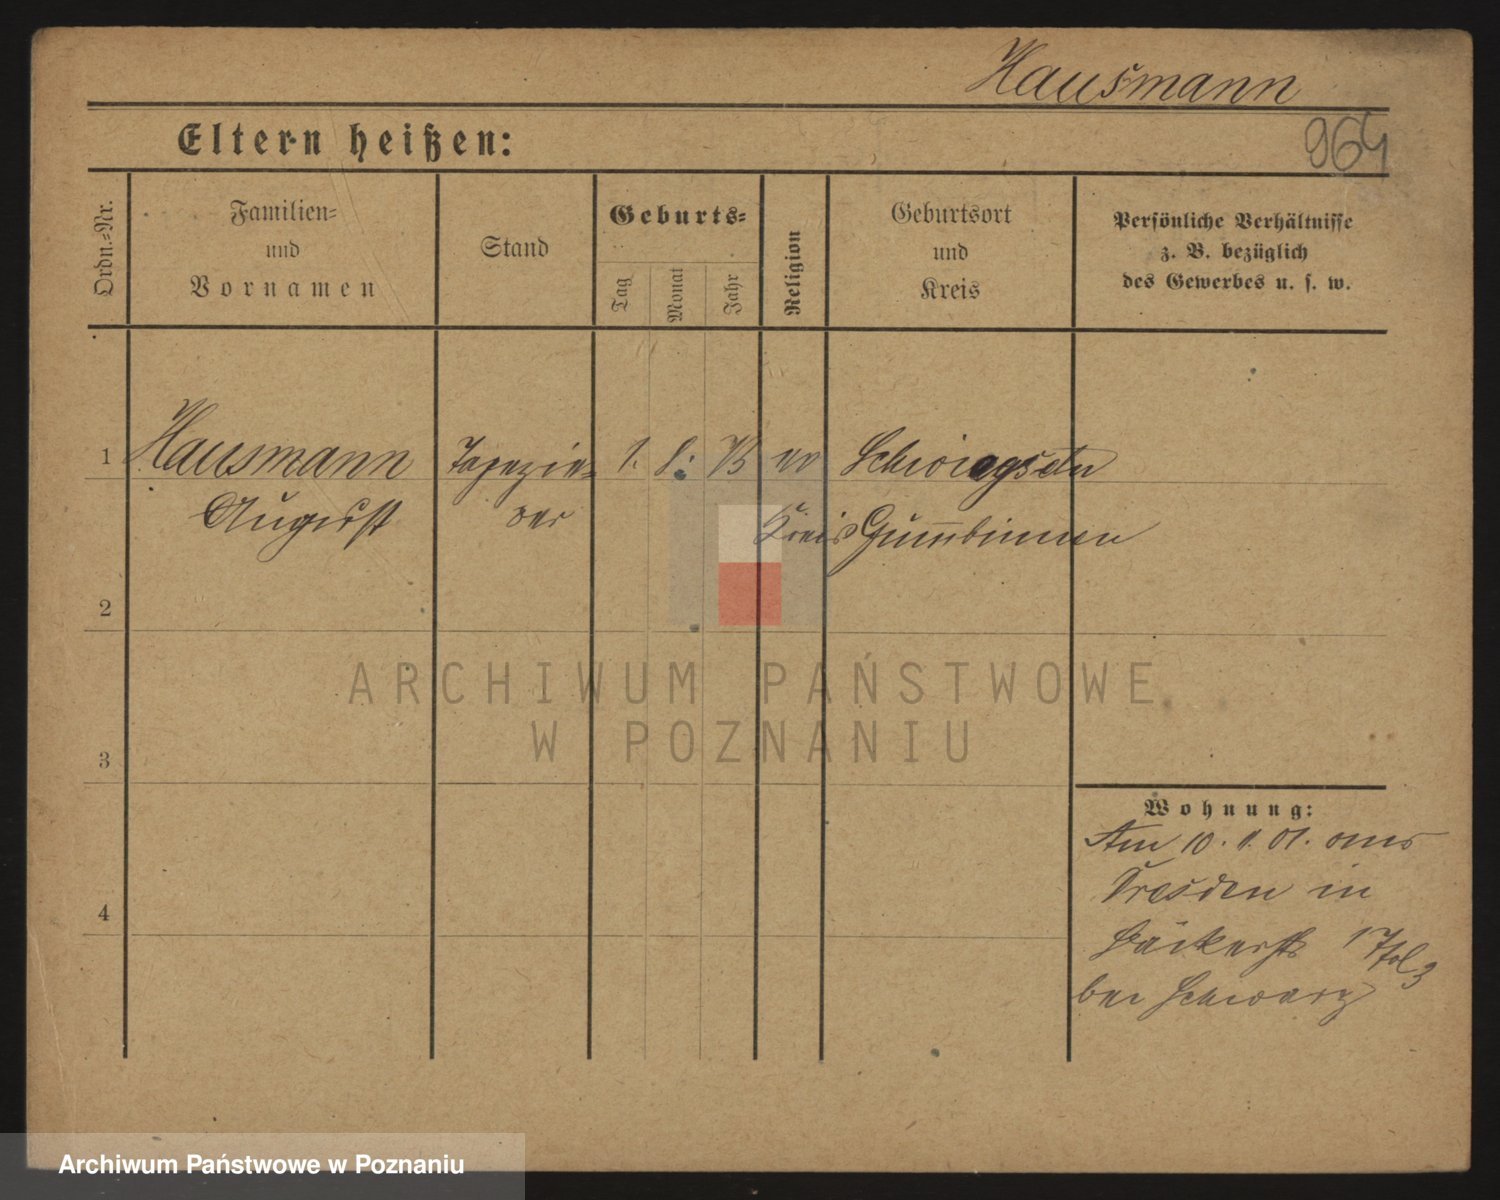 Hausmann
Eltern heißen:
964
Ordn.-Nr.
Familien-
und
Vornamen
Stand
Geburts-
Tag
Monat
Jahr
Religion
Geburtsort
und
Kreis
Persönliche Verhältnisse
z. B. bezüglich
des Gewerbes u. s. w.
1 Hausmann Tapezie- 1. 8. 73 ev
August rer Kreis Gumbinnen
2
3
4
Wohnung:
Am 10. 1. 01. aus
Dresden in
Bäckerstr 17
bei Schwarz
ARCHIWUM PAŃSTWOWE
W POZNANIU
Archiwum Państwowe w Poznaniu